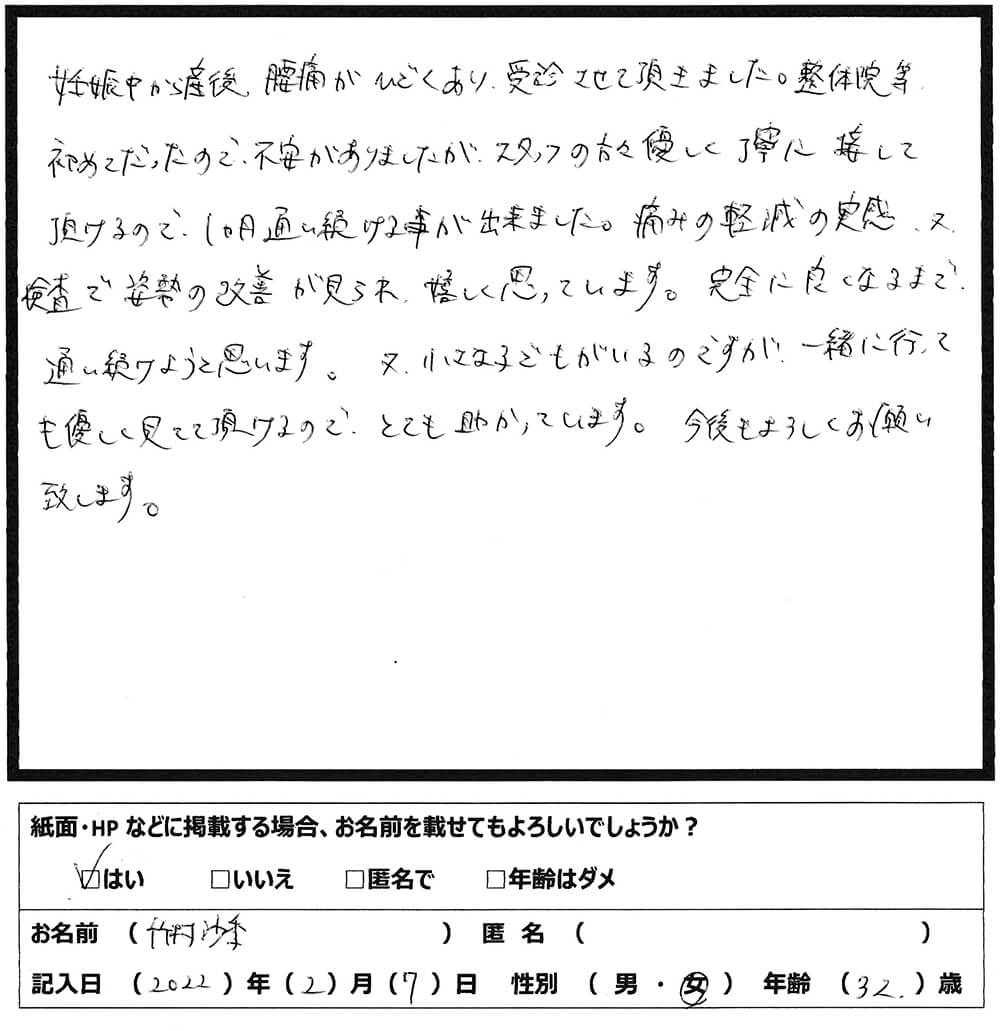 妊娠中から産後、腰痛がひどくあり、受診させて頂きました。整体院等、
初めてだったので、不安がありましたが、スタッフの方々優しく丁寧に接して
頂けるので、1ヵ月通い続ける事が出来ました。痛みの軽減の実感、又、
検査で姿勢の改善が見られ、嬉しく思っています。完全に良くなるまで、
通い続けようと思います。又、小さな子どもがいるのですが、一緒に行って
も優しく見てて頂けるので、とても助かっています。今後もよろしくお願い
致します。
紙面・HPなどに掲載する場合、お名前を載せてもよろしいでしょうか？
☑はい □いいえ □匿名で □年齢はダメ
お名前 （竹村沙季） 匿名 （ ）
記入日 （2022）年（2）月（7）日 性別 （男・女） 年齢 （32.）歳